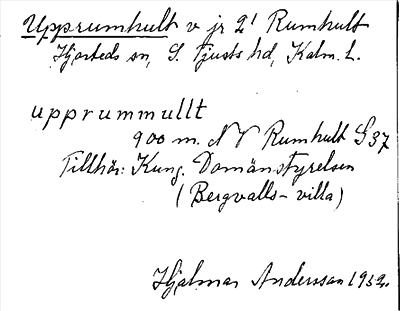 Upprumhult v jr 2¹ Rumhult
Hjorteds sn, S. Tjusts hd, Kalm. L.
upprummullt
900 m. NV Rumhult S 37
Tillhör: Kung. Domänstyrelsen
(Bergvalls-villa)
Hjalmar Andersson 1932.